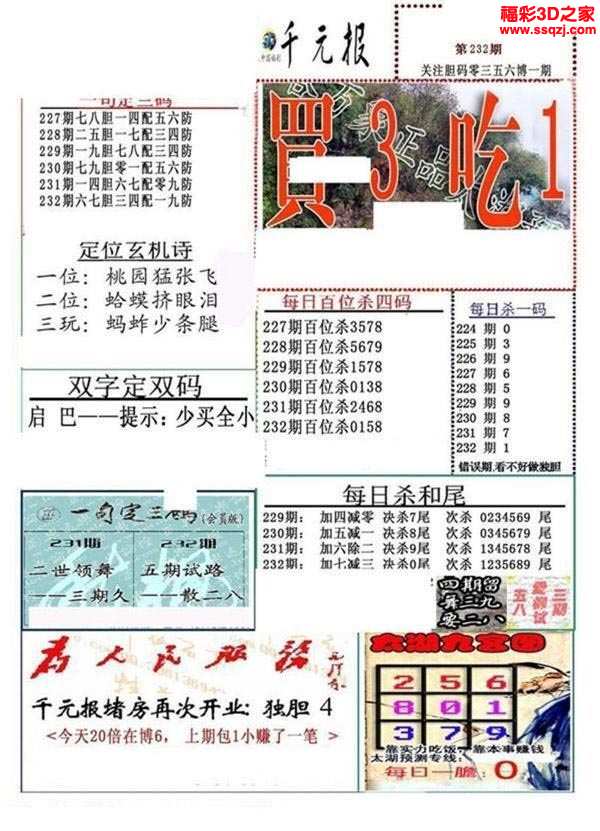 福彩3D之家
www.ssqzj.com
千元报
第232期
关注胆码零三五六博一期
一句定三码
227期七八胆一四配五六防
228期二五胆一七配三四防
229期一九胆七八配三四防
230期七九胆零一配五六防
231期一四胆六七配零九防
232期六七胆三四配一九防
買3吃1
定位玄机诗
一位：桃园猛张飞
二位：蛤蟆挤眼泪
三玩：蚂蚱少条腿
每日百位杀四码
227期百位杀3578
228期百位杀5679
229期百位杀1578
230期百位杀0138
231期百位杀2468
232期百位杀0158
每日杀一码
224 期 0
225 期 3
226 期 9
227 期 6
228 期 5
229 期 9
230 期 8
231 期 7
232 期 1
错误期,看不好做独胆
双字定双码
启 巴——提示：少买全小
每日杀和尾
229期： 加四减零 决杀7尾 次杀 0234569 尾
230期： 加五减一 决杀8尾 次杀 0345679 尾
231期： 加六除二 决杀9尾 次杀 1345678 尾
232期： 加七减三 决杀0尾 次杀 1235689 尾
一句定三码(会员版)
231期
二世领舞
——三期久
232期
五期试路
——散二八
四期留
舞三九
零二八
三期
爱彩试
五八
为人民服务
千元报堵房再次开业：独胆 4
<今天20倍在博6， 上期包1小赚了一笔>
太湖九宫图
2 5 6
8 0 1
3 7 9
靠实力吃饭，靠本事赚钱
太湖预测专线：
每日一胆：0